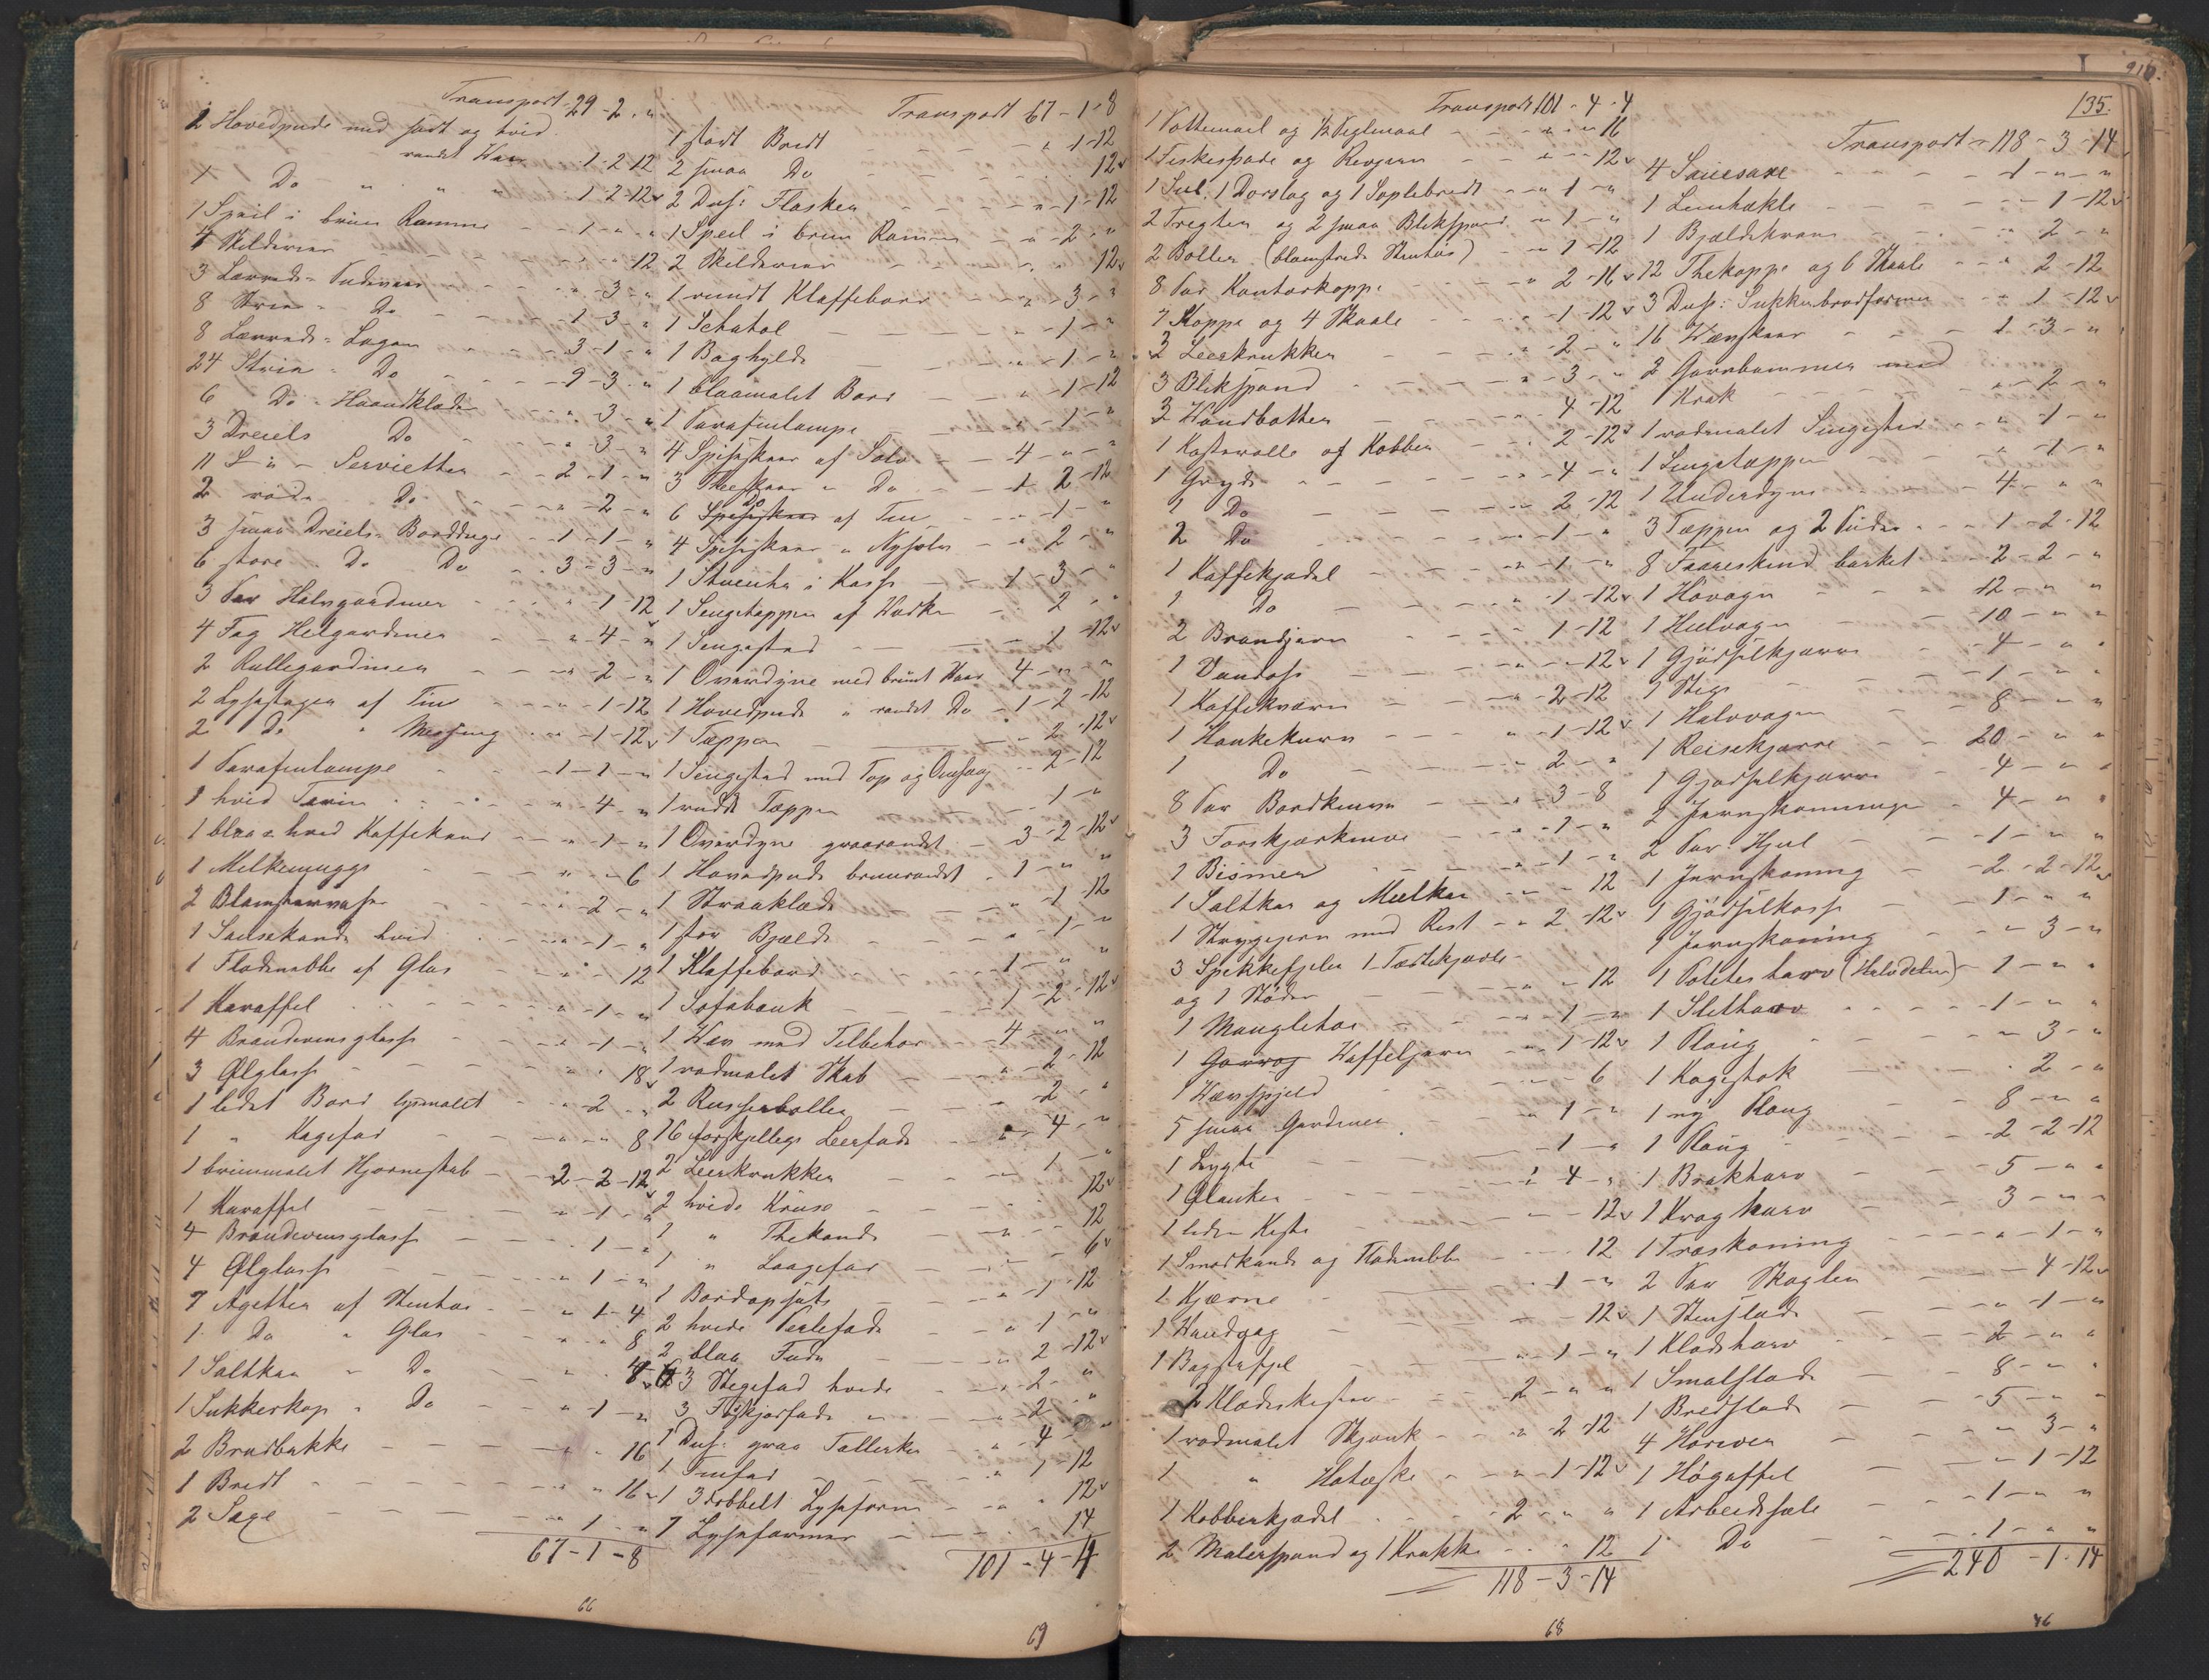 Transport 29-2-"
2 Hovedpude med sort og hvid
randet Waar - 1-2-12
1 Do " " " 1-2-12
1 Speil i brun Ramme - 1 - "
4 Skilderier - - 12
3 Lærreds-Pudevaar - " - 3 - "
8 Strie - Do - 1-3-"
8 Lærreds-Lagen - 3-1-"
24 Strie - Do - 9-3-"
6 Do - Haandklæde - " 3 - "
3 Dreiels Do - " 3 - "
11 Servietter - 2-1-"
2 røde Do - " - 2 - "
3 smaa Dreiels-Bordduge - 1-1-"
6 store Do Do - 3-3-"
3 Par Halvgardiner - " 1-12
4 Fag Helgardiner - " 4 - "
2 Rullegardiner - " 2 - "
2 Lysestager af Tin - " 1-12
2 Do " Messing - " 1-12
1 Parafinlampe - 1-1-"
1 hvid Terrin - " 4 - "
1 blaa & hvid Kaffekande - " 1 - "
1 Melkemugge - " " 6
2 Blomstervase - " 2 - "
1 Sausekande hvid - " 1 - "
1 Flødenebbe af Glas - " 12
1 Karaffel - " 1 - "
4 Brændevinsglasse - " 1 - "
3 Ølglasse - " 18
1 lidet Bord lysmalet - " 2 - "
1 " Kagefad - " " 8
1 brunmalet Hjørneskab - 2-2-12
1 Karaffel - " 1 - "
4 Brændevinsglasse - 1 - "
4 Ølglasse - " 1 - "
7 Agetter af Stentøi - " 1-4
1 Do " Glas - " " 8
1 Saltkar " Do
1 Sukkerkop " Do - " 1 - "
2 Brødbakke - " " 16
1 Bredt - " " 16
2 Sage - " 1 - "
67-1-8
66
Transport 67-1-8
1 stort Bredt - " 1-12
2 smaa Do - 12
2 Dus: Flasker - " 1-12
1 Speil i brun Ramme - " 2 - "
2 Skilderier - " 12
1 rundt Klaffebord - " 3 - "
1 Schatol - " 1 - "
1 Boghylde - " 1 - "
1 blaamalet Bord - " 1-12
1 Parafinlampe - " 1 - "
4 Spiseskeer af Sølv - 4 - " - "
3 Theskeer " Do - 1-2-12
6 Do af Tin - " 1 - "
4 Spiseskeer " Nysølv - " 2 - "
1 Stueuhr i Kasse - 1-3-"
1 Sengetæppe af Wadke - 2 - "
1 Sengested - 1-12
1 Overdyne med brunt Waar 4 - " - "
1 Hovedpude " randet Do - 1-2-12
1 Tæppe - " 2-12
1 Sengested med Top og Omhæng " 2-12
1 rødt Tæppe - 1 - "
1 Overdyne graarandet - 3-2-12
1 Hovedpude brunrandet - 1 - " "
1 Straaklæde - " 1-12
1 stor Bjælde - " 1 - "
1 Klaffebord - 1 - " "
1 Sofabænk - 1-2-12
1 Wæv med Tilbehør - 4 - " "
1 rødmalet Skab - " 2-12
2 Russerboller - " 2 - "
16 forskjellige Leerfade - " 4 - "
2 Leerkrukker - " 1 - "
2 hvide Kruse - 12
1 " Thekande - " 12
1 " Laagefad - " 6
1 Bordopsats - " 1-12
2 hvide Terlefade - " 1 - "
2 blaa Fade - " 2-12
3 Stegefad hvide - " 2 - "
3 Fiskjørfade " - " 2 - "
1 Dus: graa Tallerker - " 4 - "
1 Tinfad - " 1-12
1 3 dobbelt Lyseform - " 12
7 Lyseformer - " 14
101-4-4
69
Transport 101-4-4
1 Pottemaal og 1/2 Peglmaal - " " 16
1 Fiskespade og Rivjern - " " 12
1 Sul, 1 Dorslag og 1 Soplebredt - " 1 - "
2 Tragter og 2 smaa Blikspand - " 1 - "
2 Boller (blomstrede Stentøi) - " 1-12
8 Par Kontorkoppe - " 2-16
7 Koppe og 4 Skaale - " 1-12
2 Leerkrukker - " 2 - "
3 Blikspand - " 3 - "
3 Wandbøtter - " 4-12
1 Kasterolle af Kobber - " 2-12
1 Gryde - " 4 - "
1 Do - " 2-12
2 Do - " 1 - "
1 Kaffekjedel - " 1 - "
1 Do - " 1-12
2 Brandjern - " 1-12
1 Vandøse - " " 12
1 Kaffekværn - " 2-12
1 Hankekurv - " 1-12
1 Do - " 2 - "
8 Par Bordknive - " 3-8
3 Forskjærknive - " 1 - "
1 Bismer - " 1 - "
1 Saltkar og Melkar - " " 12
1 Strygejern med Rist - " 2-12
3 Spekkefjeler 1 Tærtekjævle
og 1 Støder - " 12
1 Mangletøi - " 1 - "
1 Waffeljern - " 1-12
1 Wævspjeld - " 6
5 smaa Gardiner - " 1 - "
1 Lygte - " 1 - "
1 Ølanker - " 4 - "
1 liden Kiste - " 12
1 Smørkande og Flødenebbe - 12
1 Kjærne - " 1 - "
1 Wandsag - " 12
1 Bagstefjel - " 1 - "
2 Klædeskister - 2 - " "
1 rødmalet Skjænk - " 2-12
1 " Hatæske - " 1-12
1 Kobberkjedel - 2 - " "
2 Malerspand og 1 Krukke - " 12
118-3-14
68
135.
Transport - 118-3-14
4 Sauesaxe - 1 - " - "
1 Linhækle - " 1-12
1 Bjældekrans - " 2 - "
12 Thekoppe og 6 Skaale - " 2-12
3 Dus: Sukkerbrødformer - " 1-12
16 Wævskeer - 1-3-"
2 Garnbommer med
Krak - " 2 - "
1 rødmalet Sengested - " 1 - "
1 Sengetæppe - " 1 - "
1 Underdyne - 4 - " "
3 Tæpper og 2 Puder - 1-2-12
8 Faareskind barket - 2-2-"
1 Høvogn - 12 - " "
1 Hjulvogn - 10 - " "
1 Gjødselkjærre - 4 - " "
1 Stige - 1 - " "
1 Halvvogn - 8 - " "
1 Reisekjærre - 20 - " "
1 Gjødselkjærre - 4 - " "
2 Jernskoninger - 4 - " "
2 Par Hjul - 1 - " "
1 Jernskoning - 2-2-12
1 Gjødselkasse - 1 - " "
1 Jernskoning - " 3 - "
1 Potetesharv (Halvdelen) - 1 - " "
1 Sletharv - 1 - " "
1 Ploug - " 3 - "
1 Kagestok - 2 - "
1 ny Ploug - 8 - " "
1 Ploug - 2-2-12
1 Brakharv - 5 - " "
1 Krogharv - 3 - " "
1 Træskoning - " 1 - "
2 Par Skagler - 4-12
1 Stenslæde - " 1 - "
1 Klodsharv - 2 - " "
1 Smalslæde - 8 - " "
1 Bredslæde - 5 - " "
4 Høriver - " 3 - "
1 Høgaffel - " 1-12
1 Arbeidssele - 1 - " "
1 Do - 1 - " "
240-1-14